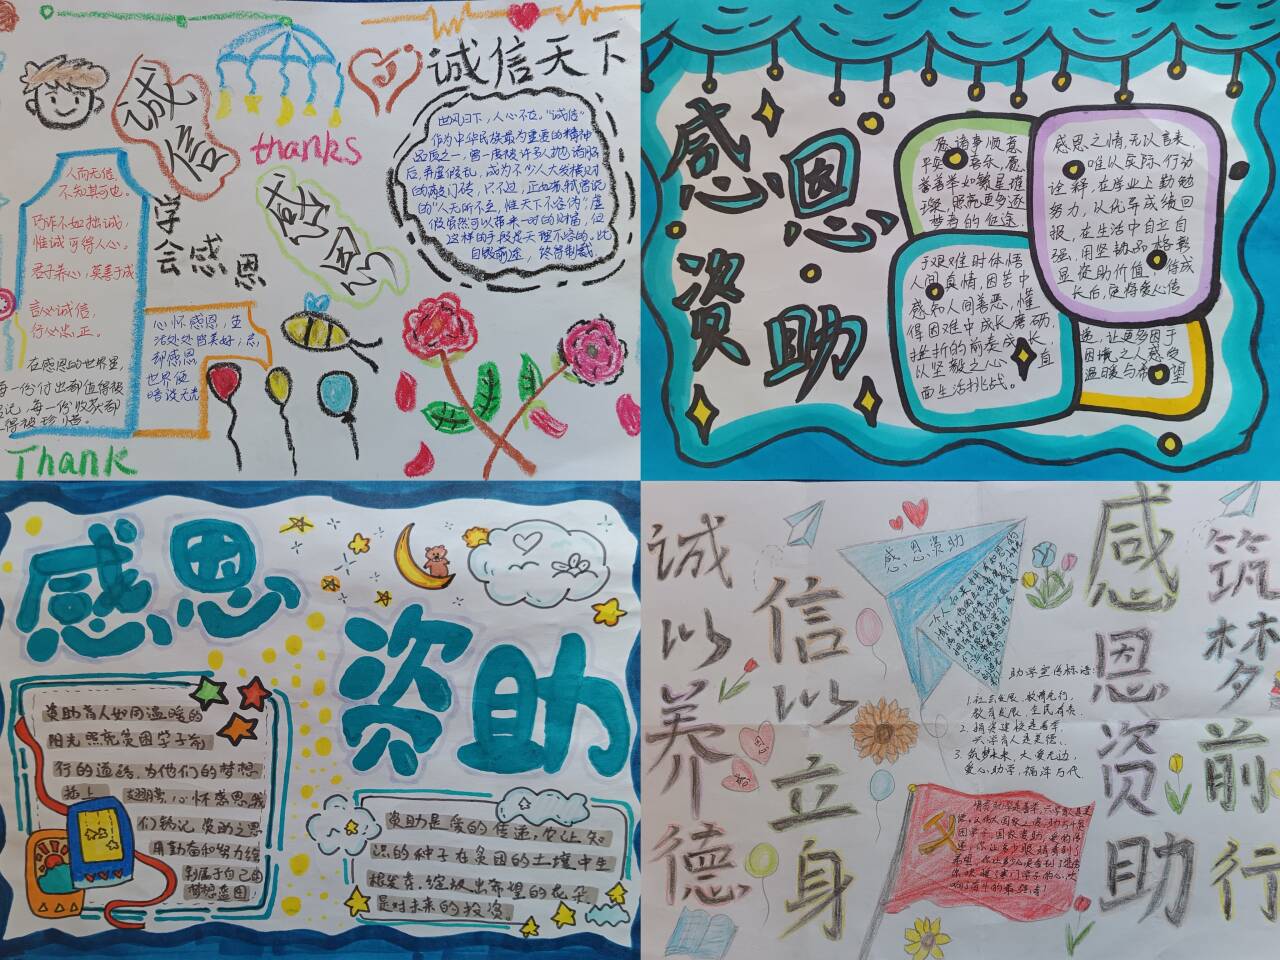 诚信
thanks
诚信天下
世风日下，人心不古。“诚信”
作为中华民族最为重要的精神
品质之一，曾一度被许多人抛诸脑
后，弄虚假乱，成为不少人大发横财
的敲门砖，只不过，正如苏轼曾说
的“人无所不至，惟天下不容伪”虚
假虽然可以带来一时的财富，但
这样的手段是天理不容的，此
自毁前途，终将制裁
人而无信，
不知其可也。
巧诈不如拙诚，
惟诚可得人心，
君子养心，莫善于诚
言必诚信，
行必忠正。
学会感恩
感恩
心怀感恩，生
活处处皆美好，忘
却感恩
世界便
暗淡无光
在感恩的世界里，
每一份付出都值得被
记，每一份收获都
得被珍惜。
Thank
感恩
资助
愿诸事顺意，
平安喜乐，愿
善举如繁星璀
璨，照亮更多逐
梦者的征途
感恩之情无以言表，
唯以实际行动
诠释，在学业上勤勉
努力，以优异成绩回
报，在生活中自立自
强，用坚韧品格彰
显资助价值，待成
长后，定将爱心传
递，让更多困于
困境之人感受
温暖与希望
于艰难时体悟
人间真情，困苦中
感知人间善恶，懂
得困难中成长磨砺，
挫折的前奏成长，
以坚毅之心直
面生活挑战。
感恩
资助
资助育人如同温暖的
阳光照亮贫困学子前
行的道路，为他们的梦想
插上翅膀，心怀感恩，我
们铭记资助之恩
用勤奋和努力绘
制属于自己的
梦想蓝图
资助是爱的传递，它让知
识的种子在贫困的土壤中生
根发芽，绽放出希望的花朵，
是对未来的投资
诚以养德
信以立身
感恩资助
筑梦前行
感恩资助
助学宣传标语:
1.社会发展，教育先行，
教育发展，全民有责。
2.捐资建校是善举，
兴学育人是美德。
3.筑梦未来，大爱无边，
爱心助学，福泽万代。